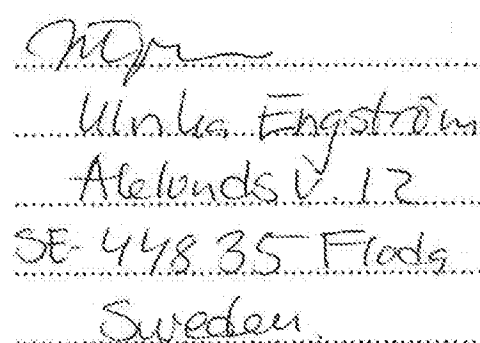 Ulrika Engström
Alelunds V. 12
SE-448 35 Floda
Sweden